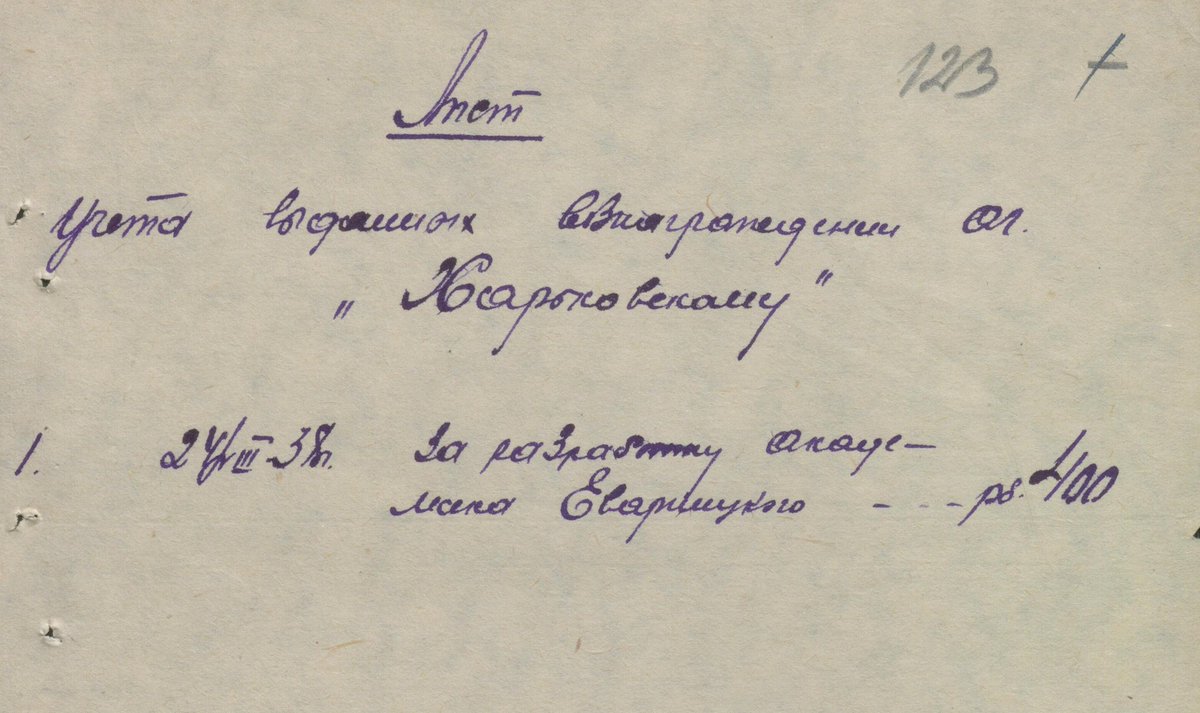 123 +
Лист
Учета выданных вознаграждении аг.
„Харьковскому"
1. 24/III-38г. За разработку акаде-
мика Еварницкого - - - рб. 400